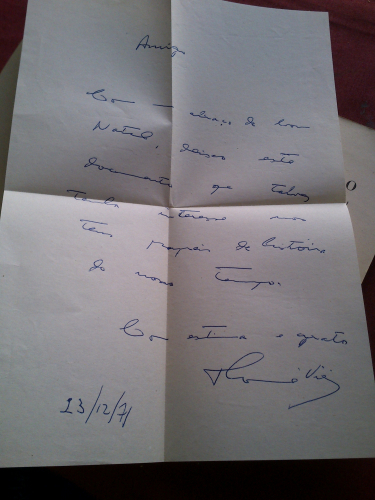 Amigo
Com um abraço de bom
Natal, deixo este
documento que talvez
tenha interesse nos
teus papéis de história
do nosso tempo.
Com estima e
23/12/71
O